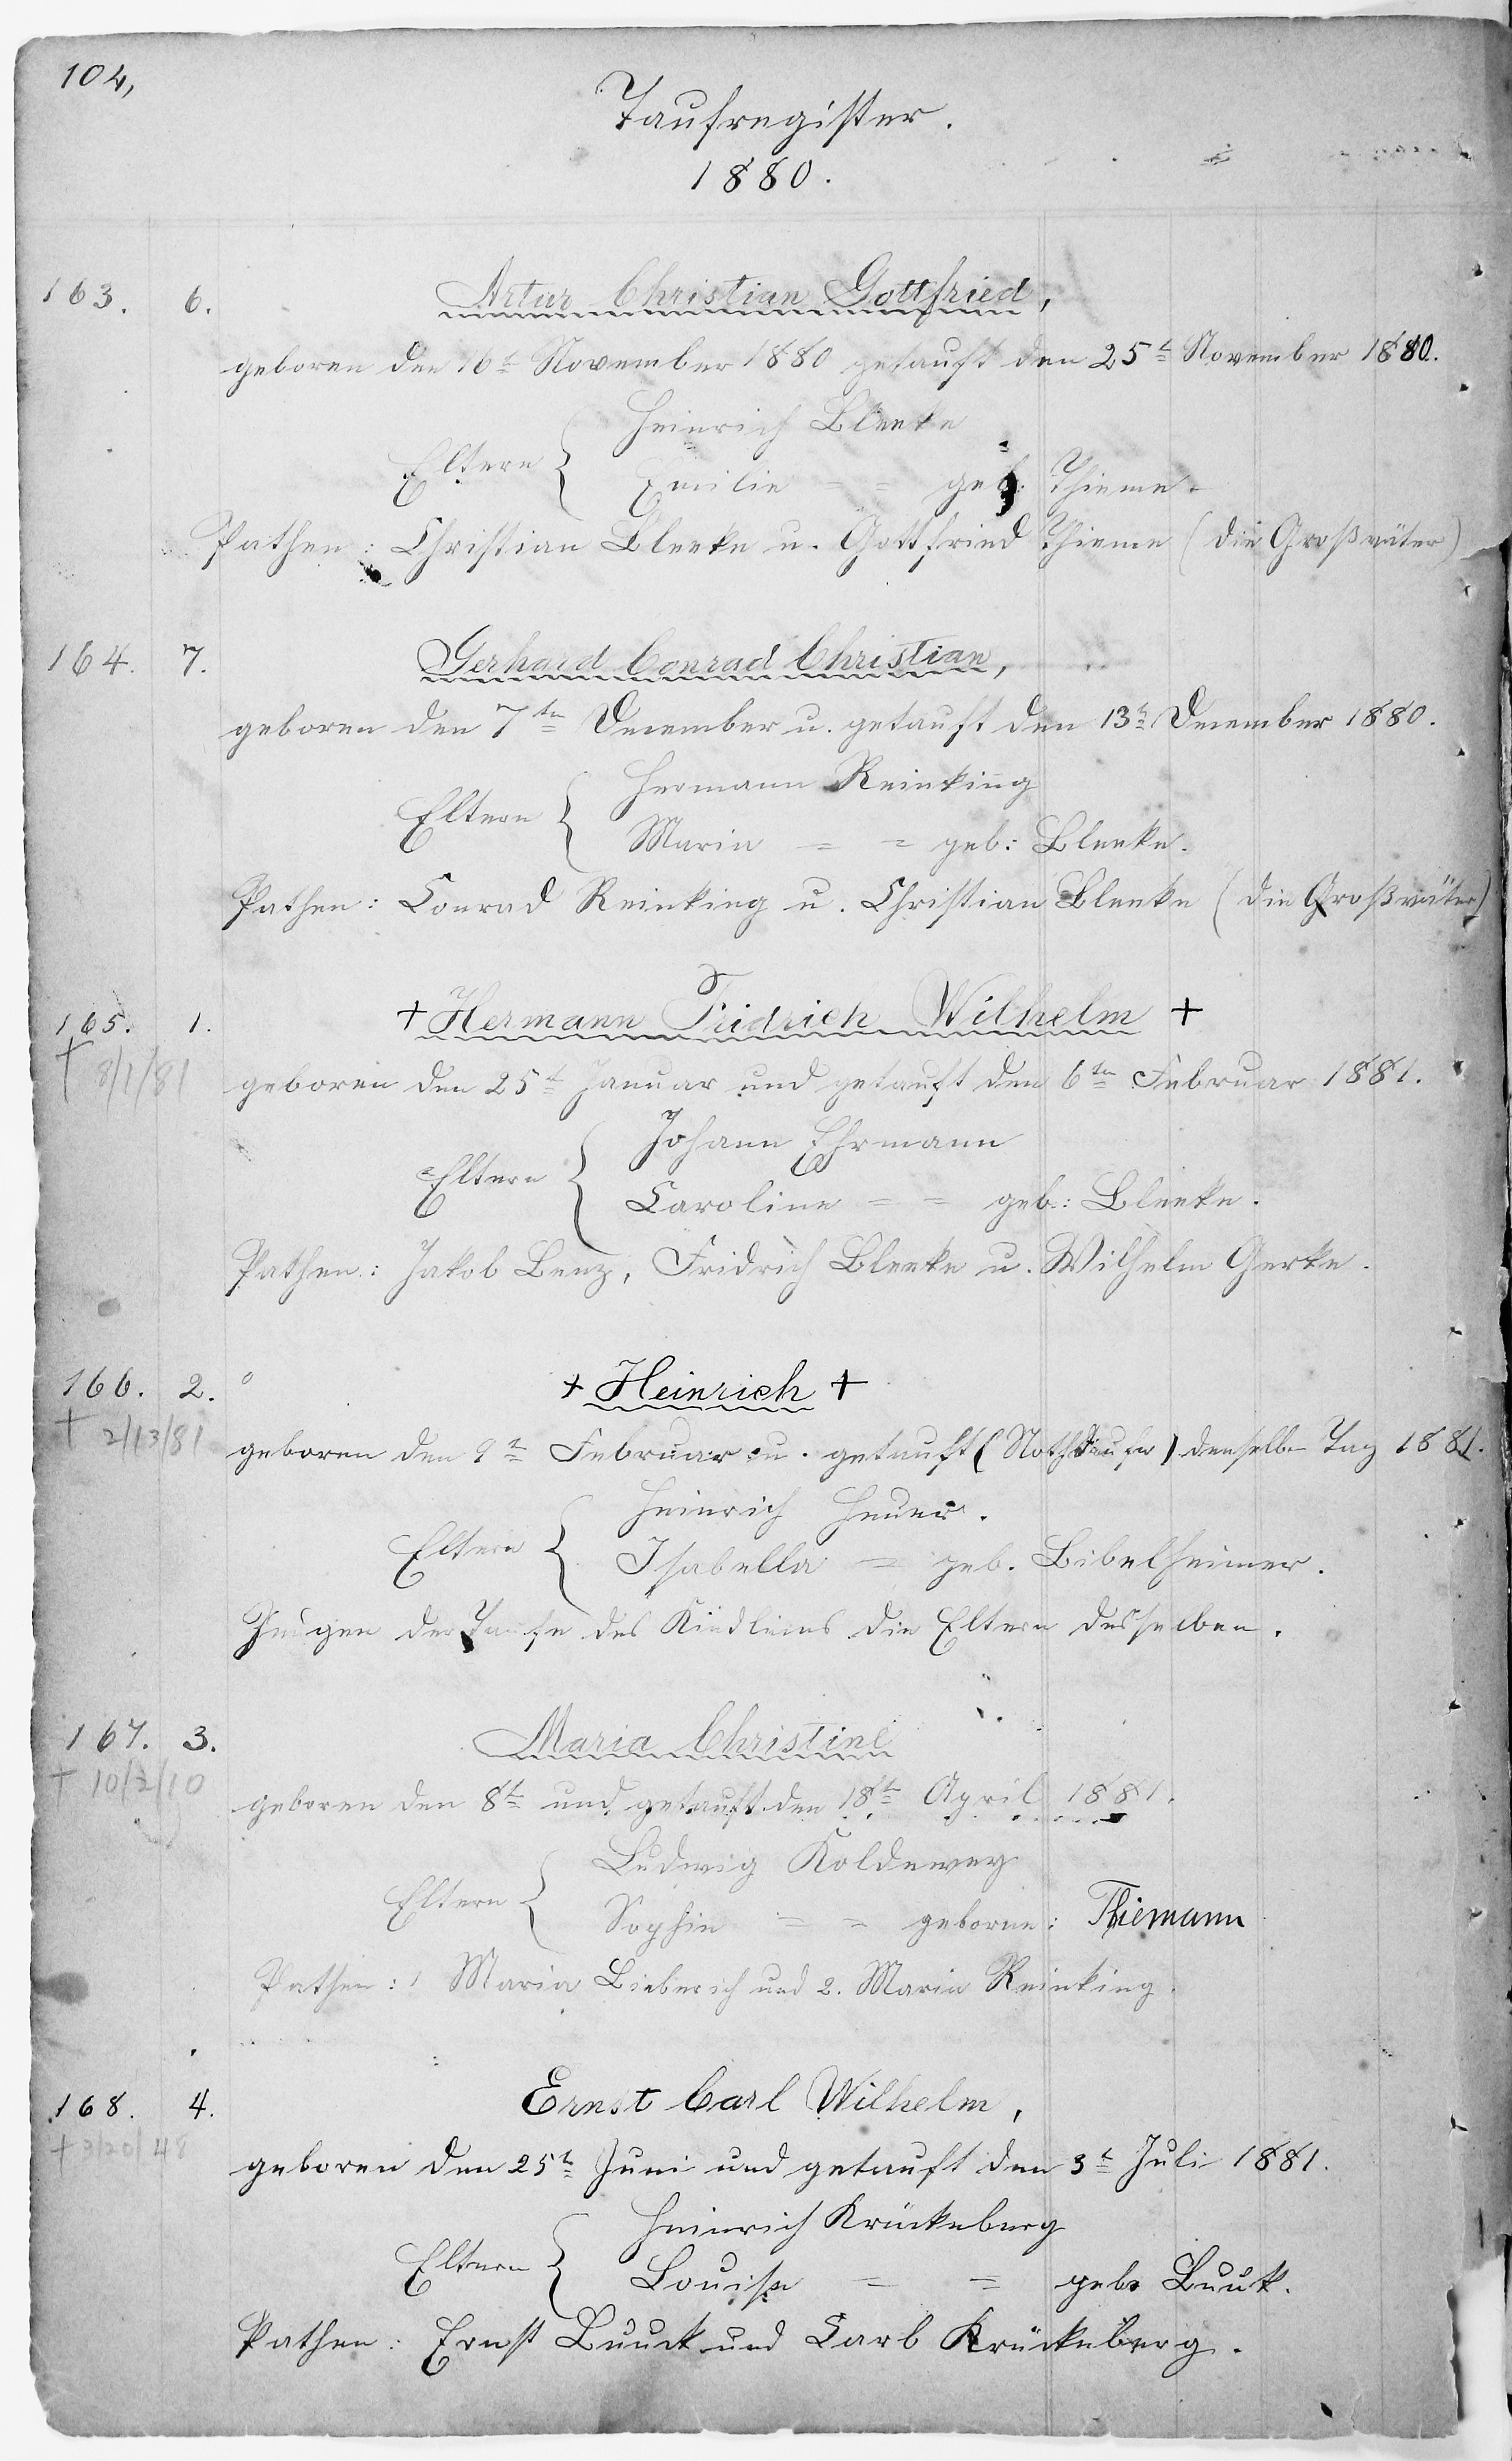 104,
Taufregister.
1880.
163. 6. Artur Christian Gottfried,
geboren den 16t November 1880 getauft den 25t November 1880.
Heinrich Bleeke
Eltern
Emilie = = geb: Thieme.
Pathen: Christian Bleeke u. Gottfried Thieme (die Großväter)
164. 7. Gerhard Conrad Christian,
geboren den 7ten Dezember u. getauft den 13t Dezember 1880.
Hermann Reinking
Eltern
Marie = = geb: Bleeke.
Pathen: Conrad Reinking u. Christian Bleeke (die Großväter)
165. 1. + Hermann Fridrich Wilhelm +
† 8/1/81
geboren den 25t Januar und getauft den 6ten Februar 1881.
Johann Ehrmann
Eltern
Caroline = = geb: Bleeke.
Pathen: Jakob Benz, Fridrich Bleeke u. Wilhelm Gerke.
166. 2. + Heinrich +
† 2/13/81
geboren den 9t Februar u. getauft (Nothtaufe) denselben Tag 1881.
Heinrich Heuer.
Eltern
Isabella = geb. Bibelheimer.
Zeugen der Taufe des Kindleins die Eltern desselben.
167. 3. Maria Christine
† 10/2/10
geboren den 8t und getauft den 18t April 1881.
Ludwig Koldewey
Eltern
Sophie = = geborne: Thiemann
Pathen: 1 Maria Bieberich und 2. Marie Reinking.
168. 4. Ernst Carl Wilhelm,
† 3/20/48
geboren den 25t Juni und getauft den 3t Juli 1881.
Heinrich Krückeberg
Eltern
Louise = = geb. Buuk.
Pathen: Ernst Buuck und Carl Krückeberg.